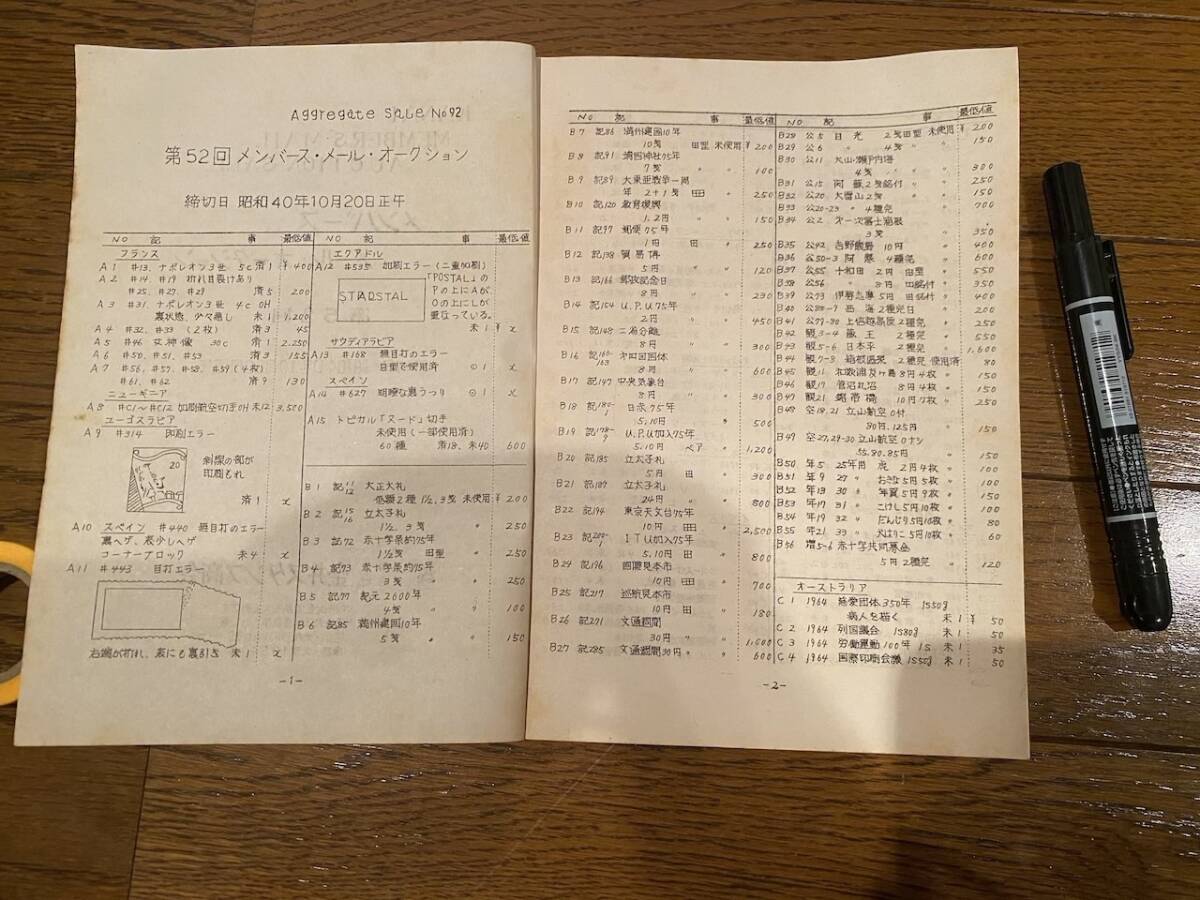 Aggregate Sale No92
第52回 メンバース・メール・オークション
締切日 昭和40年10月20日正午
NO 記 事 最低値
フランス
A1 #13, ナポレオン3世 5c 済1 ¥400
A2 #14, #19 折れ目裂けあり
#25, #27, #29 済5 200
A3 #31, ナポレオン3世 4c OH
裏状態, 少々悪し 未1 1,200
A4 #32, #33 (2枚) 済3 45
A5 #46 女神像 30c 済1 2,250
A6 #50, #51, #53 済3 155
A7 #56, #57, #58, #59 (4枚)
#61, #62 済9 130
ニューギニア
A8 #C1~#C12 加刷航空切手OH 未12 3,500
ユーゴスラビア
A9 #314 印刷エラー
斜線の部が
印刷もれ
20
済1 x
A10 スペイン #440 組目打のエラー
裏ヘゲ, 表少しヘゲ
コーナーブロック 未4 x
A11 #443 目打エラー
右端が折れ, 表にも裏引き 未1 x
NO 記 事 最低値
エクアドル
A12 #535 加刷エラー (二重加刷)
STPAOSTAL
「POSTAL」の
Pの上にAが
Oの上にLが
重なっている。
未1 ¥x
サウディアラビア
A13 #168 組目打のエラー
田型で使用済 ⊙1 x
スペイン
A14 #627 明瞭な裏うつり ⊙1 x
A15 トピカル「ヌード」切手
未使用(一部使用済)
60種 済18, 未40 600
B1 記11/12 大正大礼
低額2種 1½, 3銭 未使用 ¥200
B2 記15/16 立太子礼
1½, 3銭 〃 250
B3 記72 赤十字条約75年
1½銭 田型 〃 250
B4 記73 赤十字条約75年
3銭 〃 〃 250
B5 記77 紀元2600年
4銭 〃 〃 100
B6 記85 満州建国10年
5銭 〃 〃 150
-1-
NO 記 事 最低値
B7 記86 満州建国10年
10銭 田型 未使用 ¥200
B8 記91 靖国神社75年
7銭 〃 〃 100
B9 記89 大東亜戦争一周
年 2+1銭 田 〃 250
B10 記120 教育復興
1.2円 〃 〃 150
B11 記97 郵便75年
1円 田 〃 250
B12 記138 貿易博
5円 〃 〃 120
B13 記166 郵政記念日
8円 〃 〃 230
B14 記154 U.P.U75年
2円 〃 〃 450
B15 記148 二海分離
8円 〃 〃 300
B16 記160-163 第四回国体
8円 〃 〃
B17 記147 中央気象台
8円 〃 〃 300
B18 記180-1 日赤75年
5,10円 〃 〃 500
B19 記178-9 U.P.U加入75年
5,10円 ペア 〃 1,200
B20 記185 立太子礼
5円 田 〃 300
B21 記187 立太子礼
24円 〃 〃 800
B22 記194 東京天文台75年
10円 田 〃 2,500
B23 記200-1 ITU加入75年
5,10円 田 〃 800
B24 記196 国際見本市
10円 田 〃 700
B25 記217 巡航見本市
10円 田 〃 180
B26 記271 文通週間
30円 〃 〃 1,600
B27 記285 文通週間30円 〃 〃 600
-2-
NO 記 事 最低値
B28 公5 日光 2銭田型 未使用 ¥200
B29 公6 〃 4銭 〃 〃 150
B30 公11 大山・瀬戸内海
4銭 〃 〃 300
B31 公15 阿蘇2銭銘付 〃 250
B32 公20 大雪山2銭 〃 150
B33 公20-23 〃 4種完 〃 700
B34 公2 第一次富士箱根
3銭 〃 350
B35 公42 吉野熊野 10円 〃 400
B36 公50-3 阿寒 4種完 〃 600
B37 公55 十和田 2円 田型 〃 550
B38 公56 〃 8円 田銘付 〃 350
B39 公73 伊勢志摩 5円 田銘付 〃 400
B40 公88-9 西海 2種完 〃 200
B41 公79-80 上信越高原 2種完 〃 250
B42 観3-4 蔵王 2種完 〃 550
B43 観5-6 日本平 2種完 〃 1,600
B44 観7-8 箱根温泉 2種完 使用済 80
B45 観11 和歌浦友ケ島 8円4枚 〃 150
B46 観17 菅沼丸沼 8円4枚 〃 150
B47 観21 錦帯橋 10円7枚 〃 250
B48 空18,21 立山航空0付
80円,125円 〃 150
B49 空27,29-30 立山航空0ナシ
55.80.85円 〃 150
B50 年5 25年用 虎 2円4枚 〃 100
B51 年9 27 〃 おきな5円5枚 〃 100
B52 年13 30 〃 年賀5円9枚 〃 150
B53 年17 31 〃 こけし5円10枚 〃 100
B54 年19 32 〃 だんじり5円10枚 〃 80
B55 年21 33 〃 犬はりこ5円10枚 〃 60
B56 増5-6 赤十字共同募金
5円2種完 〃 120
オーストラリア
C1 1964 慈愛団体350年 1S50g
病人を描く 未1 ¥50
C2 1964 列国議会 1S80g 未1 50
C3 1964 労働運動100年 1S 未1 35
C4 1964 国際印刷会議 1S50g 未1 50